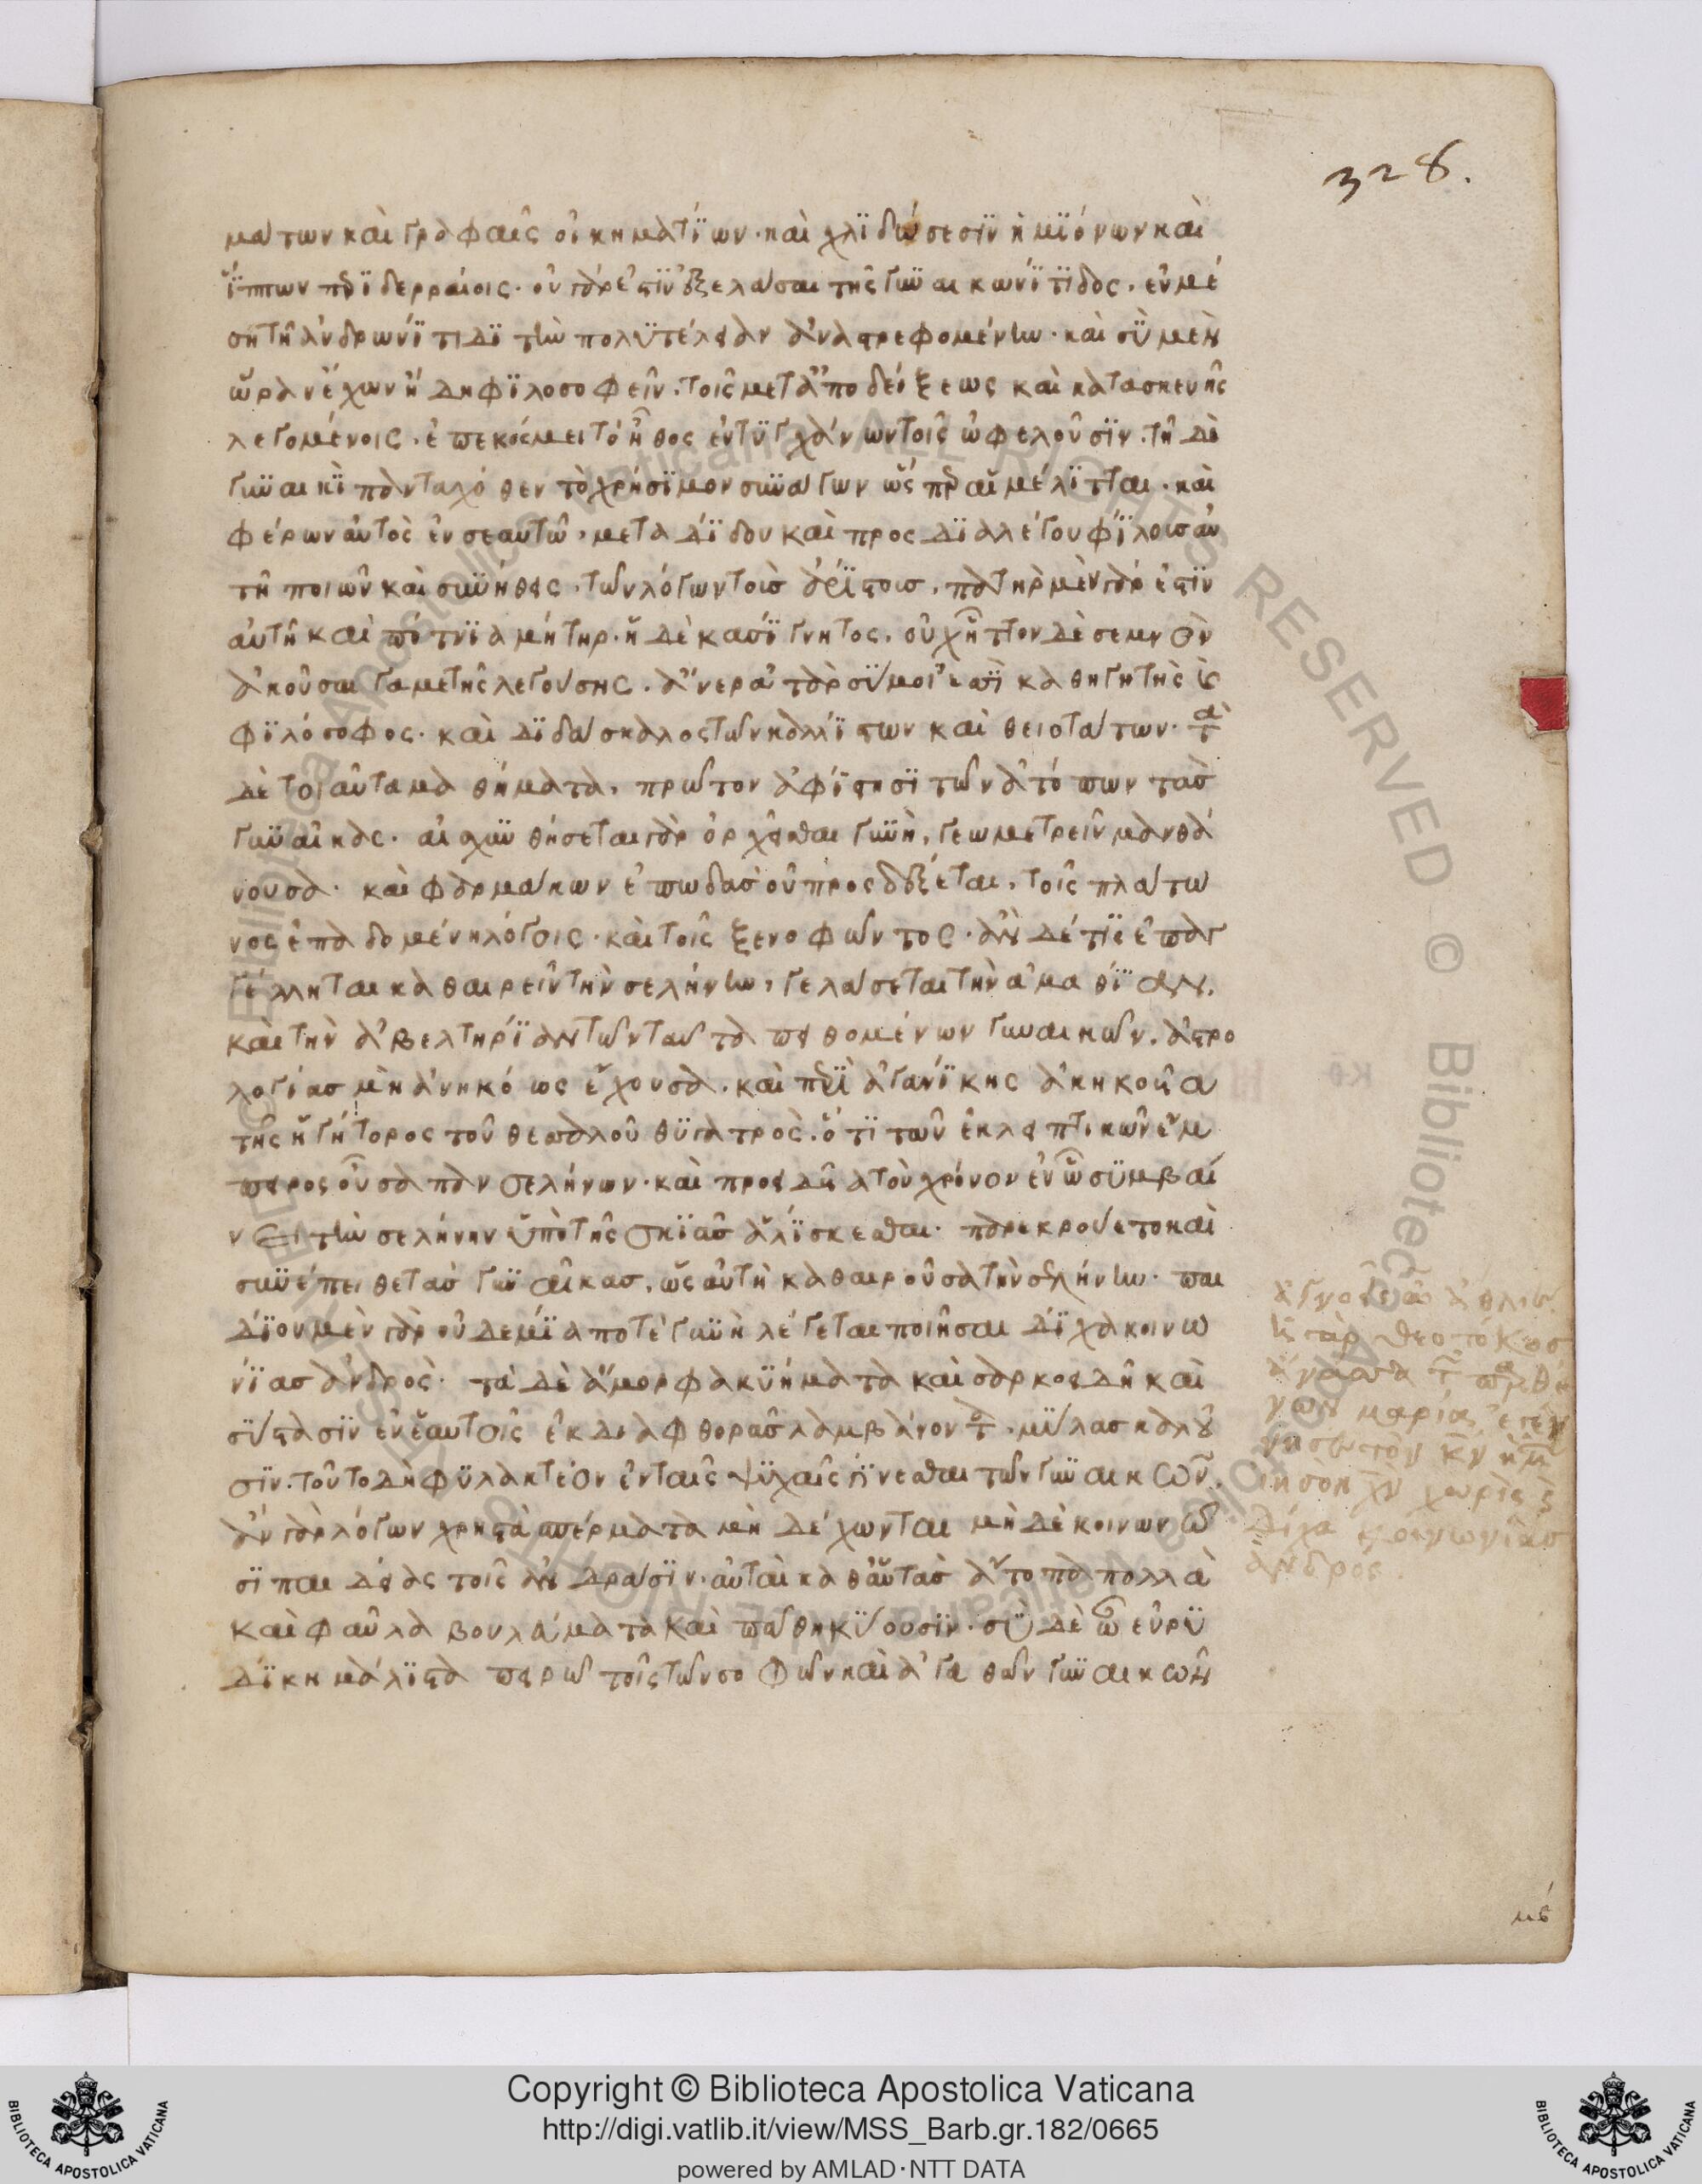 328.
μάτων καὶ γραφαῖς οἰκηματΐων· καὶ χλϊδώσεσϊν ἡμϊόνων καὶ
ΐππων περϊδερραίοις· οὐ γὰρ ἐστϊν ἐξελάσαι τῆς γϋναικωνίτϊδος· ἐν μέ
ση τῆ ἀνδρωνίτιδϊ τὴν πολϋτέλειαν ἀναστρεφομένην· καὶ σϋ μὲν
ὥραν ἔχων ἤδη φϊλοσοφεῖν· τοῖς μετ' ἀποδείξεως καὶ κατασκευῆς
λεγομένοις· ἐπεκόσμει τό ἦθος ἐντϋγχάνων τοῖς ὠφελοῦσϊν· τῆ δὲ
γϋναικϊ πανταχόθεν τὸ χρήσϊμον σϋνάγων ὥσπερ αἱ μέλϊτται· καὶ
φέρων αὐτὸς ἐν σεαυτῶ, μεταδΐδου καὶ προς διαλέγου φΐλους αὐ
τῆ ποιῶν καὶ σϋνήθεις, τῶν λόγων τοὺς ἀρΐστους· πατὴρ μὲν γὰρ ἐστϊν
αὐτῆ καὶ πότνϊα μήτηρ· ἠδὲ κασΐγνητος· οὐχ ἧττον δὲ σεμνὸν
ἀκοῦσαι γαμετῆς λεγούσης· ἄνερ ἀτὰρ σύ μοι ἐσσὶ καθηγητὴς καὶ
φϊλόσοφος· καὶ δϊδάσκαλος τῶν καλλΐστων καὶ θειοτάτων· τὰ
δὲ τοιαῦτα μαθήματα, πρῶτον ἀφΐστησϊ τῶν ἀτόπων τὰς
γϋναῖκας· αἰσχϋνθήσεται γὰρ ὀρχεῖσθαι γϋνὴ, γεωμετρεῖν μανθά
νουσα· καὶ φαρμάκων ἐπωδὰς οὐ προσδέξεται, τοῖς πλάτω
νος ἐπαδομένη λόγοις· καὶ τοῖς ξενοφῶντος· ἂν δέ τις ἐπαγ
γέλληται καθαιρεῖν τὴν σελήνην, γελάσεται τὴν ἀμαθΐαν,
καὶ τὴν ἀβελτηρΐαν τῶν ταῦτα πειθομένων γυναικῶν· ἀστρο
λογίας μὴ ἀνηκόως ἔχουσα· καὶ περὶ ἀγανΐκης ἀκηκοῦα
τῆς ἡγήτορος τοῦ θεσσαλοῦ θϋγατρὸς· ὅτϊ τῶν ἐκλειπτικῶν ἔμ
πειρος οὖσα πανσελήνων· καὶ προειδυῖα τὸν χρόνον ἐν ὧ σϋμβαί
νει τὴν σελήνην ὑπὸ τῆς σκϊᾶς ἁλΐσκεσθαι· παρεκρούετο καὶ
σϋνέπειθε τὰς γϋναῖκας, ὡς αὐτὴ καθαιροῦσα τὴν σελήνην· παι
δΐον μὲν γὰρ οὐδεμΐα ποτὲ γϋνὴ λέγεται ποιῆσαι δΐχα κοινω
νΐας ἀνδρὸς· τὰ δὲ ἄμορφα κϋήματα καὶ σαρκοειδῆ καὶ
σύστασϊν ἐν ἑαυτοῖς ἐκ διαφθορᾶς λαμβάνοντα· μύλας καλοῦ
σϊν· τοῦτο δὴ φϋλακτέον ἐν ταῖς ψϋχαῖς γΐνεσθαι τῶν γϋναικῶν·
ἂν γὰρ λόγων χρηστὰ σπέρματα μὴ δέχωνται μὴ δὲ κοινωνῶ
σϊ παιδείας τοῖς ἀνδράσϊν· αὐταὶ καθ' αὑτὰς ἄτοπα πολλὰ
καὶ φαῦλα βουλεύματα καὶ πάθη κύουσϊν· σὺ δὲ ὦ εὐρϋ
δΐκη μάλϊστα πειρῶ τοῖς τῶν σοφῶν καὶ ἀγαθῶν γϋναικῶν
ἀγνοεῖς
γὰρ θεοτόκος
μαρία
χωρὶς
δίχα κοινωνίας
ἀνδρός.
Copyright © Biblioteca Apostolica Vaticana
http://digi.vatlib.it/view/MSS_Barb.gr.182/0665
powered by AMLAD·NTT DATA
BIBLIOTECA APOSTOLICA VATICANA
BIBLIOTECA APOSTOLICA VATICANA